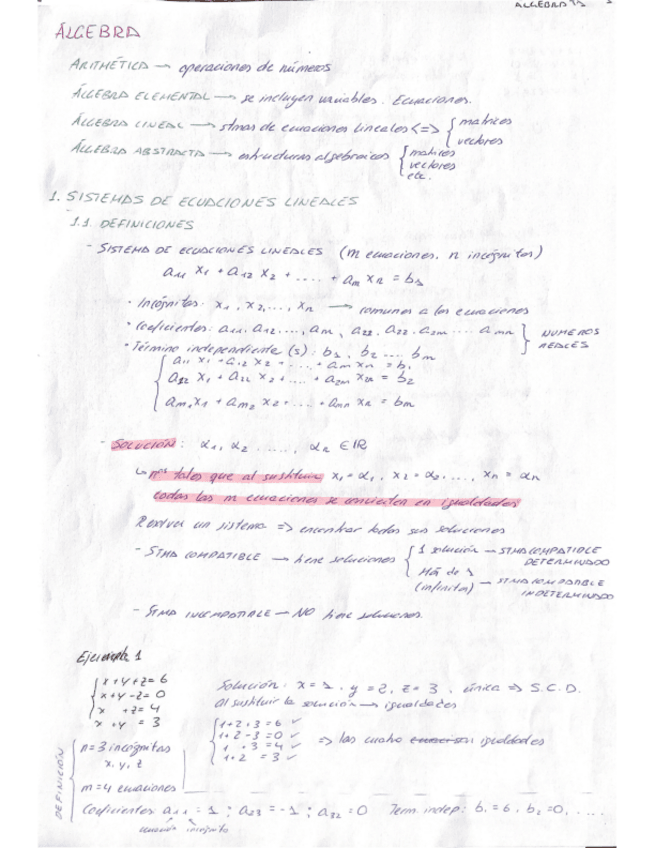 ALGEBRA
ÁLGEBRA
ARITMÉTICA → operaciones de números
ÁLGEBRA ELEMENTAL → se incluyen variables. Ecuaciones.
ÁLGEBRA LINEAL → stmas de ecuaciones lineales <=> { matrices
vectores
ÁLGEBRA ABSTRACTA → estructuras algebraicas { matrices
vectores
etc.
1. SISTEMAS DE ECUACIONES LINEALES
1.1. DEFINICIONES
- SISTEMA DE ECUACIONES LINEALES (m ecuaciones, n incógnitas)
a11 x1 + a12 x2 + .... + an xn = b1
· Incógnitas: x1, x2, ..., xn → comunes a las ecuaciones
· Coeficientes: a11, a12 ..., an, a22, a22, a2n ... amn } NÚMEROS
REALES
· Término independiente (s): b1, b2 .... bm
{ a11 x1 + a12 x2 + .... + an xn = b1
a22 x1 + a22 x2 + .... + a2n xn = b2
am1 x1 + am2 x2 + .... + amn xn = bm
- SOLUCIÓN: α1, α2 ....., αn ∈ IR
↳ nos tales que al sustituir x1 = α1, x2 = α2, ..., xn = αn
todas las m ecuaciones se convierten en igualdades
Resolver un sistema => encontrar todas sus soluciones
- STMA COMPATIBLE → tiene soluciones { 1 solución → STMA COMPATIBLE
DETERMINADO
Más de 1
(infinitas) → STMA COMPATIBLE
INDETERMINADO
- STMA INCOMPATIBLE → NO tiene soluciones.
Ejemplo 1
{ x+y+z=6
x+y-z=0
x +z=4
x+y = 3
Solución: x=1, y=2, z=3. única => S.C.D.
Al sustituir la solución → igualdades
{ 1+2+3=6 ✓
1+2-3=0 ✓
1 +3=4 ✓
1+2 =3 ✓
=> las cuatro igualdades
DEFINICIÓN
n=3 incógnitas
x, y, z
m=4 ecuaciones
Coeficientes: a11=1; a23=-1; a32=0 Term. indep: b1=6, b2=0, ....
ecuación incógnita